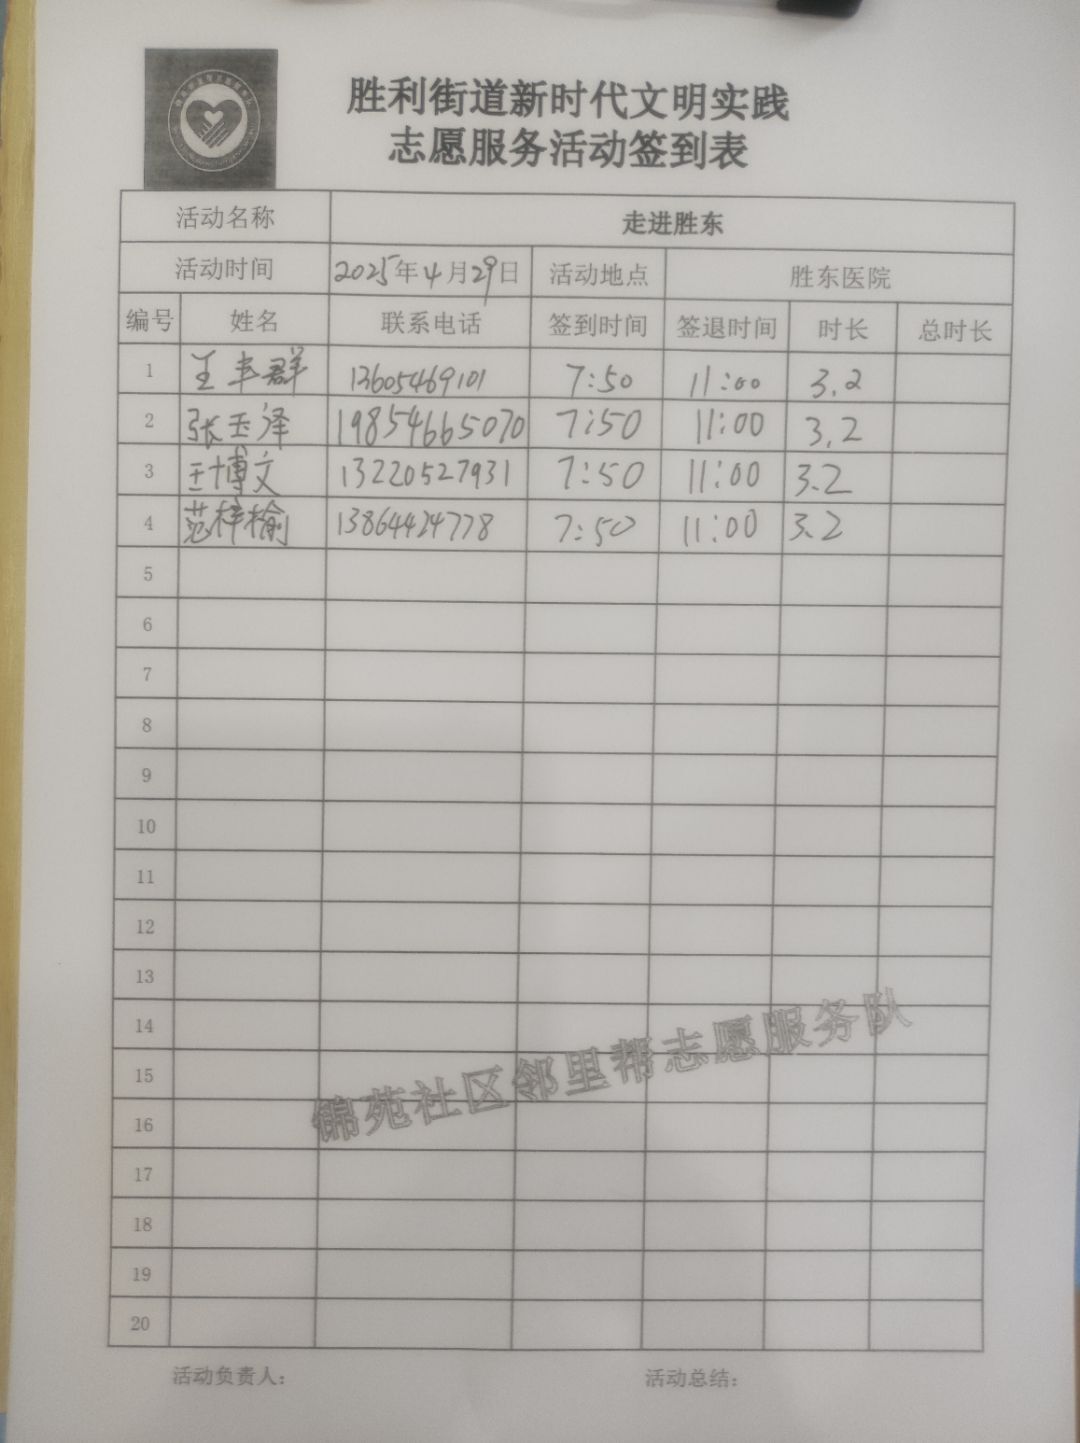 胜利街道新时代文明实践
志愿服务活动签到表
活动名称 走进胜东
活动时间 2025年4月29日 活动地点 胜东医院
编号 姓名 联系电话 签到时间 签退时间 时长 总时长
1 王丰群 13605469101 7:50 11:00 3.2
2 张玉泽 19854665070 7:50 11:00 3.2
3 王博文 13220527931 7:50 11:00 3.2
4 范梓榆 13864424778 7:50 11:00 3.2
5
6
7
8
9
10
11
12
13
14
15
16
17
18
19
20
锦苑社区邻里帮志愿服务队
活动负责人: 活动总结: